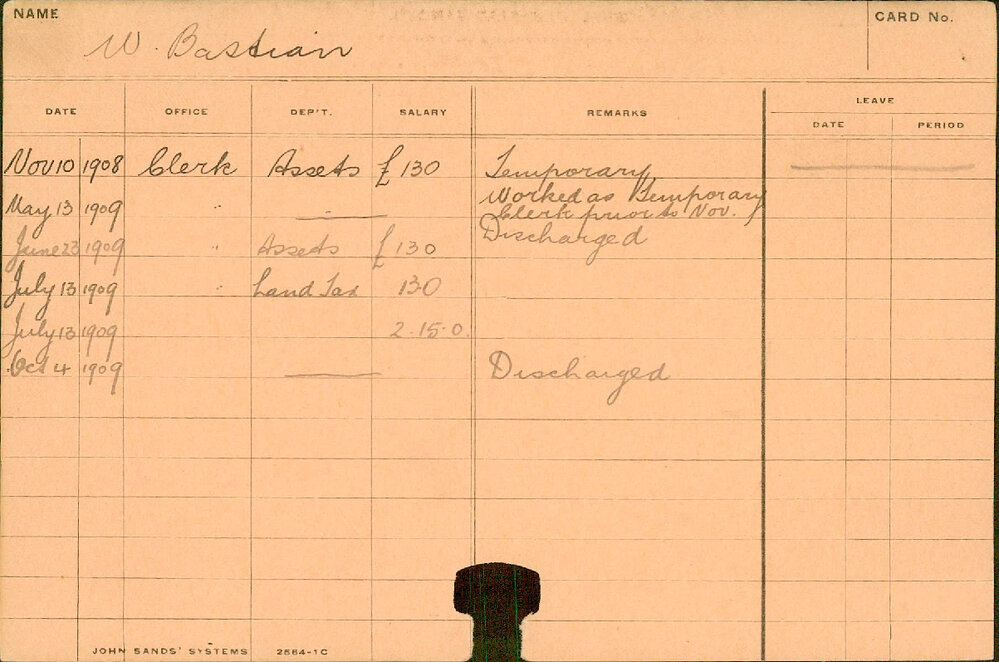 NAME CARD No.
W. Bastian
LEAVE
DATE OFFICE DEP'T. SALARY REMARKS
DATE PERIOD
Nov 10 1908 Clerk Assets £130 Temporary
Worked as Temporary
May 13 1909 " Clerk prior to Nov.
Discharged
June 23 1909 " Assets £130
July 13 1909 " Land Tax 130
July 13 1909 2.15.0.
Oct 4 1909 Discharged
JOHN SANDS' SYSTEMS 2564-1C